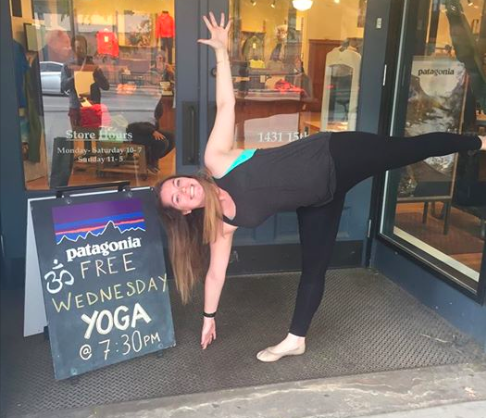 patagonia
Store Hours
Monday-Saturday 10-7
Sunday 11-5
1431 15th
patagonia
patagonia
ॐ FREE
WEDNESDAY
YOGA
@ 7:30PM